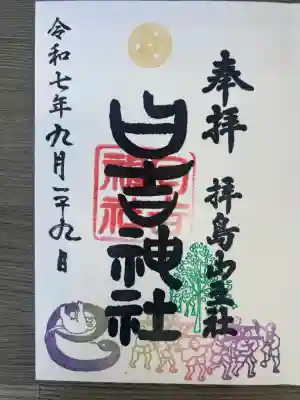 奉拝 拝島山王社
日吉神社
令和七年九月二十九日